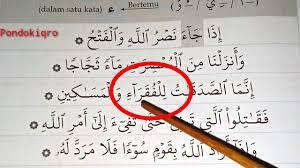 (dalam satu kata) Bertemu ء
Pondokiqro
إِذَا جَآءَ نَصْرُ اللَّهِ وَالْفَتْحُ
وَأَنْزَلْنَا مِنَ الْمُعْصِرَٰتِ مَآءً ثَجَّاجًا
إِنَّمَا الصَّدَقَٰتُ لِلْفُقَرَآءِ وَالْمَسَٰكِينِ
فَقَٰتِلُوا الَّتِي تَبْغِي حَتَّىٰ تَفِيٓءَ إِلَىٰٓ أَمْرِ اللَّهِ
وَإِذَآ أَرَادَ اللَّهُ بِقَوْمٍ سُوٓءًا فَلَا مَرَدَّ لَهُ